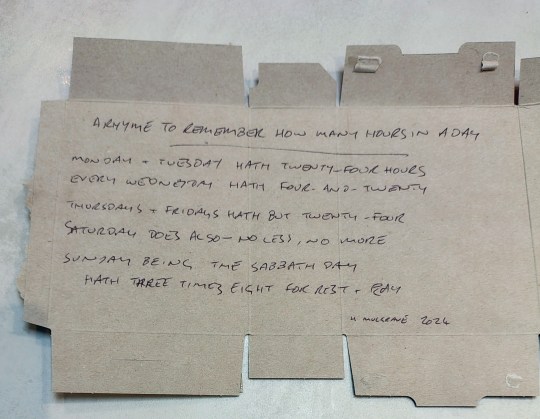 A RHYME TO REMEMBER HOW MANY HOURS IN A DAY
MONDAY + TUESDAY HATH TWENTY-FOUR HOURS
EVERY WEDNESDAY HATH FOUR-AND-TWENTY
THURSDAYS + FRIDAYS HATH BUT TWENTY-FOUR
SATURDAY DOES ALSO - NO LESS, NO MORE
SUNDAY BEING THE SABBATH DAY
HATH THREE TIMES EIGHT FOR REST + PLAY
H MULGRAVE 2024